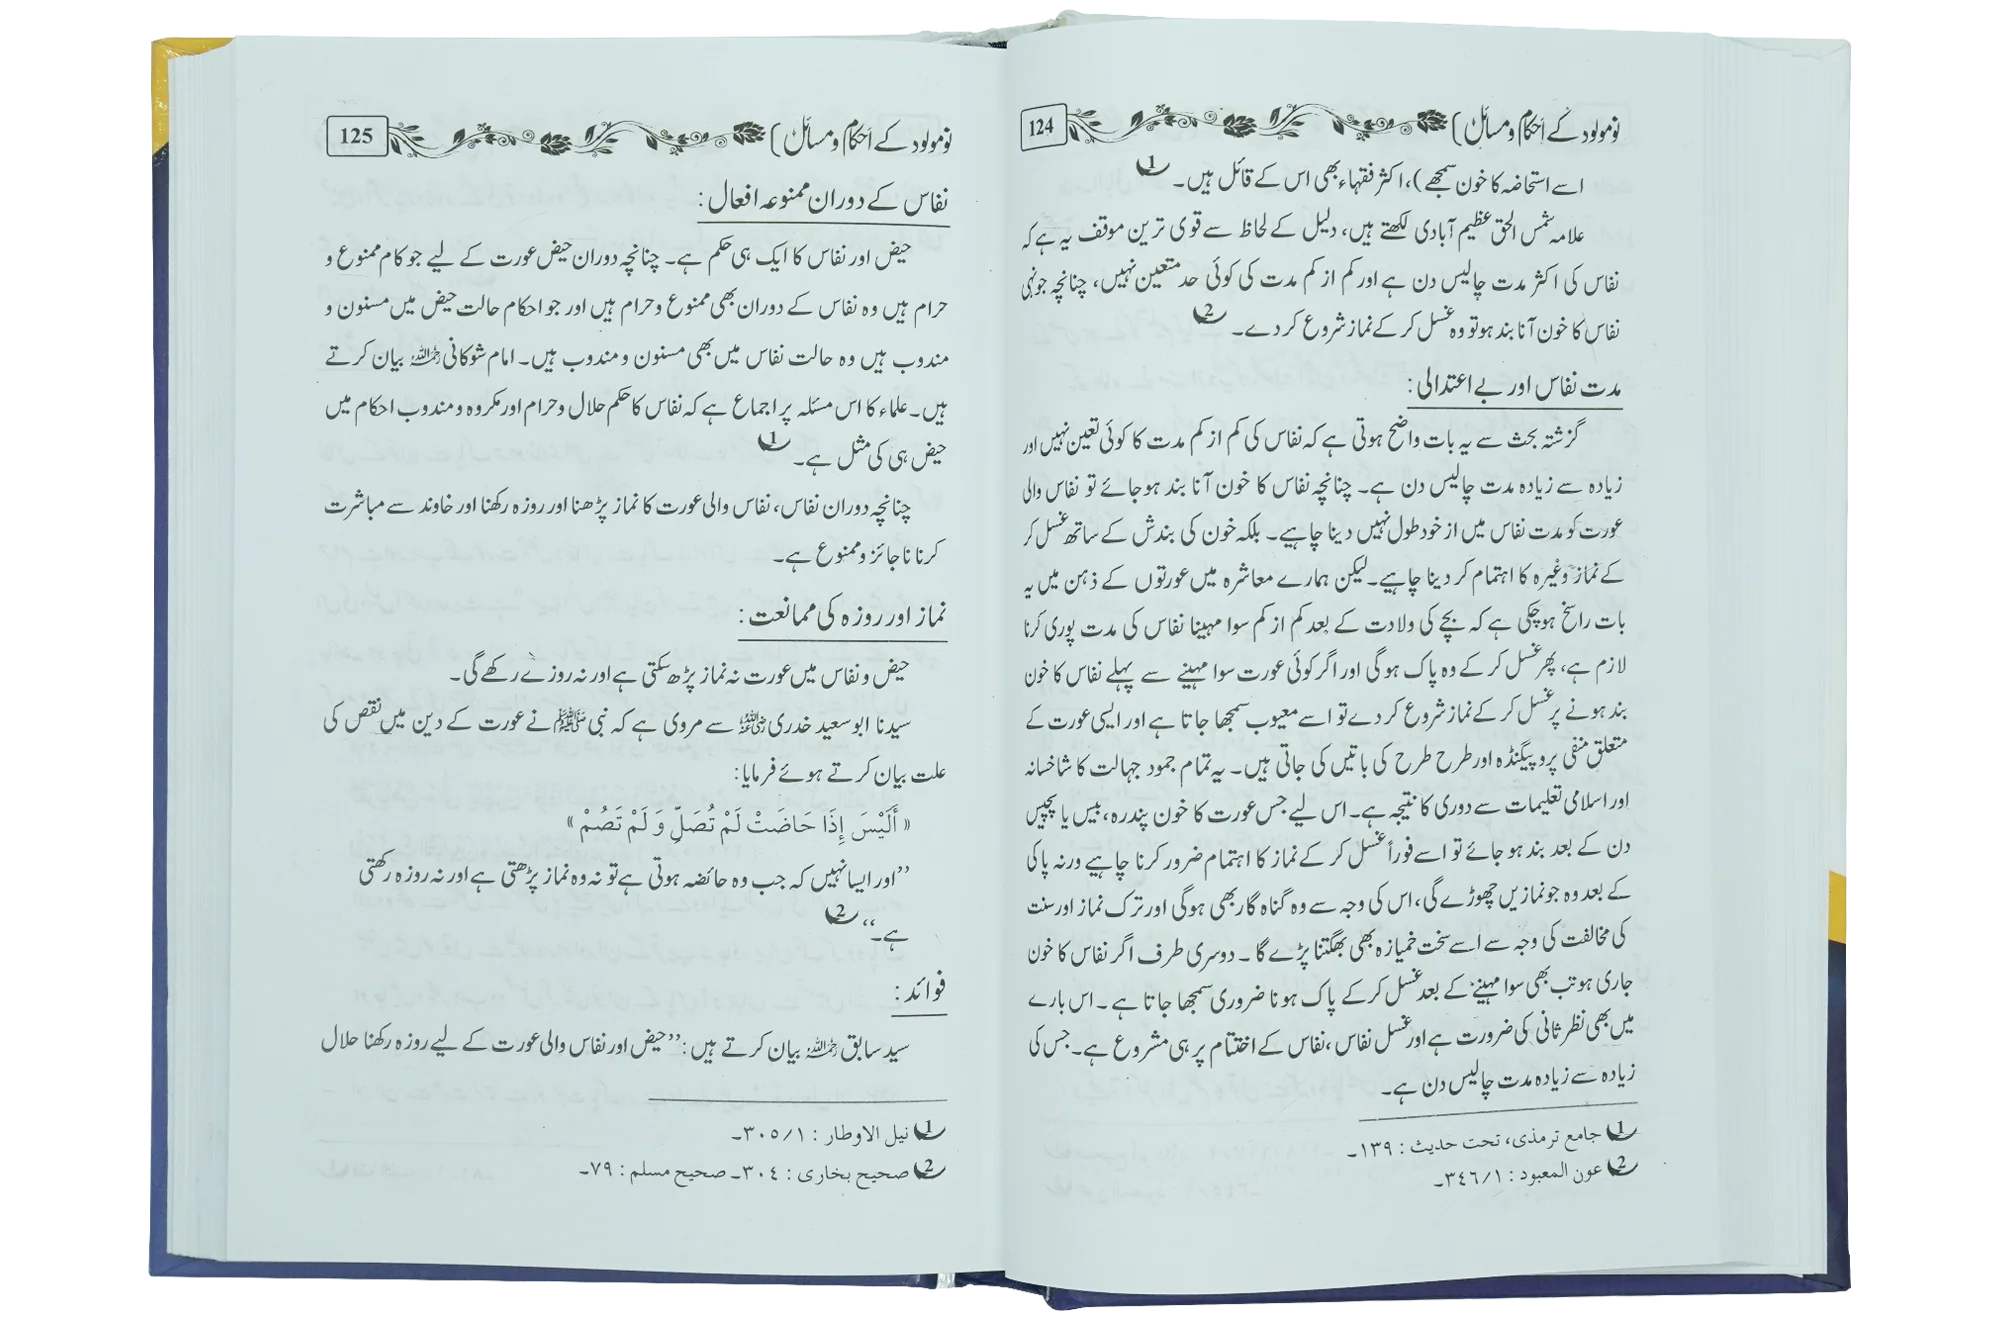 نومولود کے احکام و مسائل) 124
اسے استحاضہ کا خون سمجھے)، اکثر فقہاء بھی اس کے قائل ہیں۔ 1
علامہ شمس الحق عظیم آبادی لکھتے ہیں، دلیل کے لحاظ سے قوی ترین موقف یہ ہے کہ
نفاس کی اکثر مدت چالیس دن ہے اور کم از کم مدت کی کوئی حد متعین نہیں، چنانچہ جونہی
نفاس کا خون آنا بند ہو تو وہ غسل کر کے نماز شروع کر دے۔ 2
مدت نفاس اور بے اعتدالی:
گزشتہ بحث سے یہ بات واضح ہوتی ہے کہ نفاس کی کم از کم مدت کا کوئی تعین نہیں اور
زیادہ سے زیادہ مدت چالیس دن ہے۔ چنانچہ نفاس کا خون آنا بند ہو جائے تو نفاس والی
عورت کو مدت نفاس میں از خود طول نہیں دینا چاہیے۔ بلکہ خون کی بندش کے ساتھ غسل کر
کے نماز وغیرہ کا اہتمام کر دینا چاہیے۔ لیکن ہمارے معاشرہ میں عورتوں کے ذہن میں یہ
بات راسخ ہو چکی ہے کہ بچے کی ولادت کے بعد کم از کم سوا مہینا نفاس کی مدت پوری کرنا
لازم ہے، پھر غسل کر کے وہ پاک ہو گی اور اگر کوئی عورت سوا مہینے سے پہلے نفاس کا خون
بند ہونے پر غسل کر کے نماز شروع کر دے تو اسے معیوب سمجھا جاتا ہے اور ایسی عورت کے
متعلق منفی پروپیگنڈہ اور طرح طرح کی باتیں کی جاتی ہیں۔ یہ تمام جمود جہالت کا شاخسانہ
اور اسلامی تعلیمات سے دوری کا نتیجہ ہے۔ اس لیے جس عورت کا خون پندرہ، بیس یا پچیس
دن کے بعد بند ہو جائے تو اسے فوراً غسل کر کے نماز کا اہتمام ضرور کرنا چاہیے ورنہ پاکی
کے بعد وہ جو نمازیں چھوڑے گی، اس کی وجہ سے وہ گناہ گار بھی ہو گی اور ترک نماز اور سنت
کی مخالفت کی وجہ سے اسے سخت خمیازہ بھی بھگتنا پڑے گا۔ دوسری طرف اگر نفاس کا خون
جاری ہو تب بھی سوا مہینے کے بعد غسل کر کے پاک ہونا ضروری سمجھا جاتا ہے۔ اس بارے
میں بھی نظر ثانی کی ضرورت ہے اور غسل نفاس، نفاس کے اختتام پر ہی مشروع ہے۔ جس کی
زیادہ سے زیادہ مدت چالیس دن ہے۔
1 جامع ترمذی، تحت حدیث : ۱۳۹۔
2 عون المعبود : ۱/ ۳٤٦۔
نومولود کے احکام و مسائل) 125
نفاس کے دوران ممنوعہ افعال:
حیض اور نفاس کا ایک ہی حکم ہے۔ چنانچہ دوران حیض عورت کے لیے جو کام ممنوع و
حرام ہیں وہ نفاس کے دوران بھی ممنوع و حرام ہیں اور جو احکام حالت حیض میں مسنون و
مندوب ہیں وہ حالت نفاس میں بھی مسنون و مندوب ہیں۔ امام شوکانی رحمہ اللہ بیان کرتے
ہیں۔ علماء کا اس مسئلہ پر اجماع ہے کہ نفاس کا حکم حلال و حرام اور مکروہ و مندوب احکام میں
حیض ہی کی مثل ہے۔ 1
چنانچہ دوران نفاس، نفاس والی عورت کا نماز پڑھنا اور روزہ رکھنا اور خاوند سے مباشرت
کرنا ناجائز و ممنوع ہے۔
نماز اور روزہ کی ممانعت:
حیض و نفاس میں عورت نہ نماز پڑھ سکتی ہے اور نہ روزے رکھے گی۔
سیدنا ابو سعید خدری رضی اللہ عنہ سے مروی ہے کہ نبی ﷺ نے عورت کے دین میں نقص کی
علت بیان کرتے ہوئے فرمایا:
« أَلَيْسَ إِذَا حَاضَتْ لَمْ تُصَلِّ وَ لَمْ تَصُمْ »
’’اور ایسا نہیں کہ جب وہ حائضہ ہوتی ہے تو نہ وہ نماز پڑھتی ہے اور نہ روزہ رکھتی
ہے۔‘‘ 2
فوائد:
سید سابق رحمہ اللہ بیان کرتے ہیں: ’’حیض اور نفاس والی عورت کے لیے روزہ رکھنا حلال
1 نیل الاوطار : ۱/ ۳۰۵۔
2 صحیح بخاری : ۳۰٤۔ صحیح مسلم : ۷۹۔